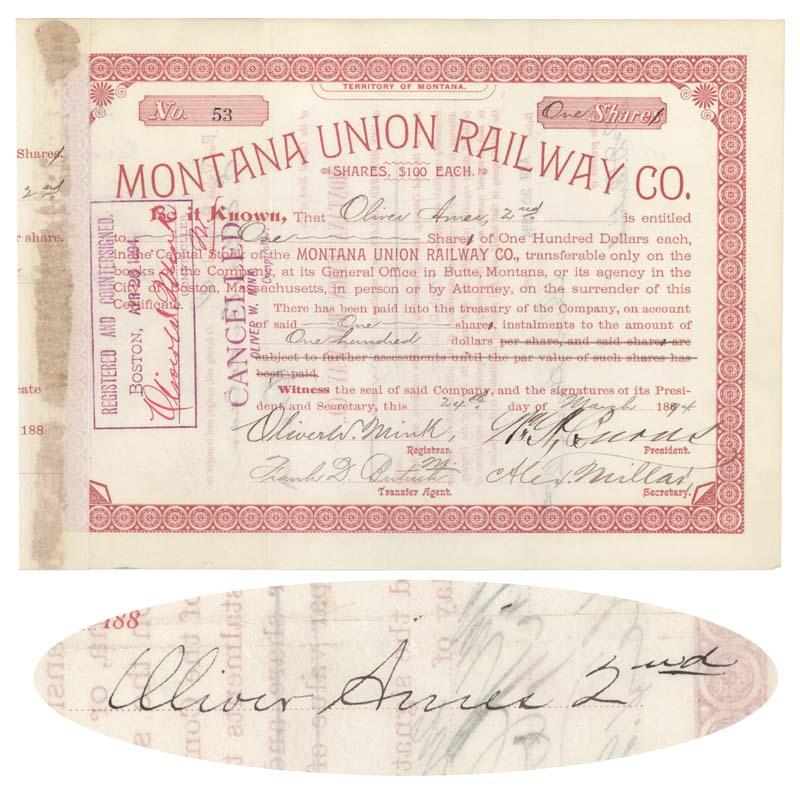 TERRITORY OF MONTANA.
No. 53
One Share
MONTANA UNION RAILWAY CO.
SHARES, $100 EACH.
Be it Known, That Oliver Ames, 2nd is entitled
to One Share of One Hundred Dollars each,
in the Capital Stock of the MONTANA UNION RAILWAY CO., transferable only on the
books of the Company, at its General Office in Butte, Montana, or its agency in the
City of Boston, Massachusetts, in person or by Attorney, on the surrender of this
Certificate.
There has been paid into the treasury of the Company, on account
of said One share, instalments to the amount of
One hundred dollars per share, and said shares are
subject to further assessments until the par value of such shares has
been paid.
Witness the seal of said Company, and the signatures of its Presi-
dent and Secretary, this 24th day of March 1894
Oliver W. Mink,
Registrar.
President.
Frank D.
Transfer Agent.
Alex. Millar,
Secretary.
REGISTERED AND COUNTERSIGNED.
BOSTON, APR 26 1894
Oliver W. Mink
CANCELLED
OLIVER W. MINK
Comptroller.
Shares.
2nd
r share.
cate
188
188
Oliver Ames 2nd